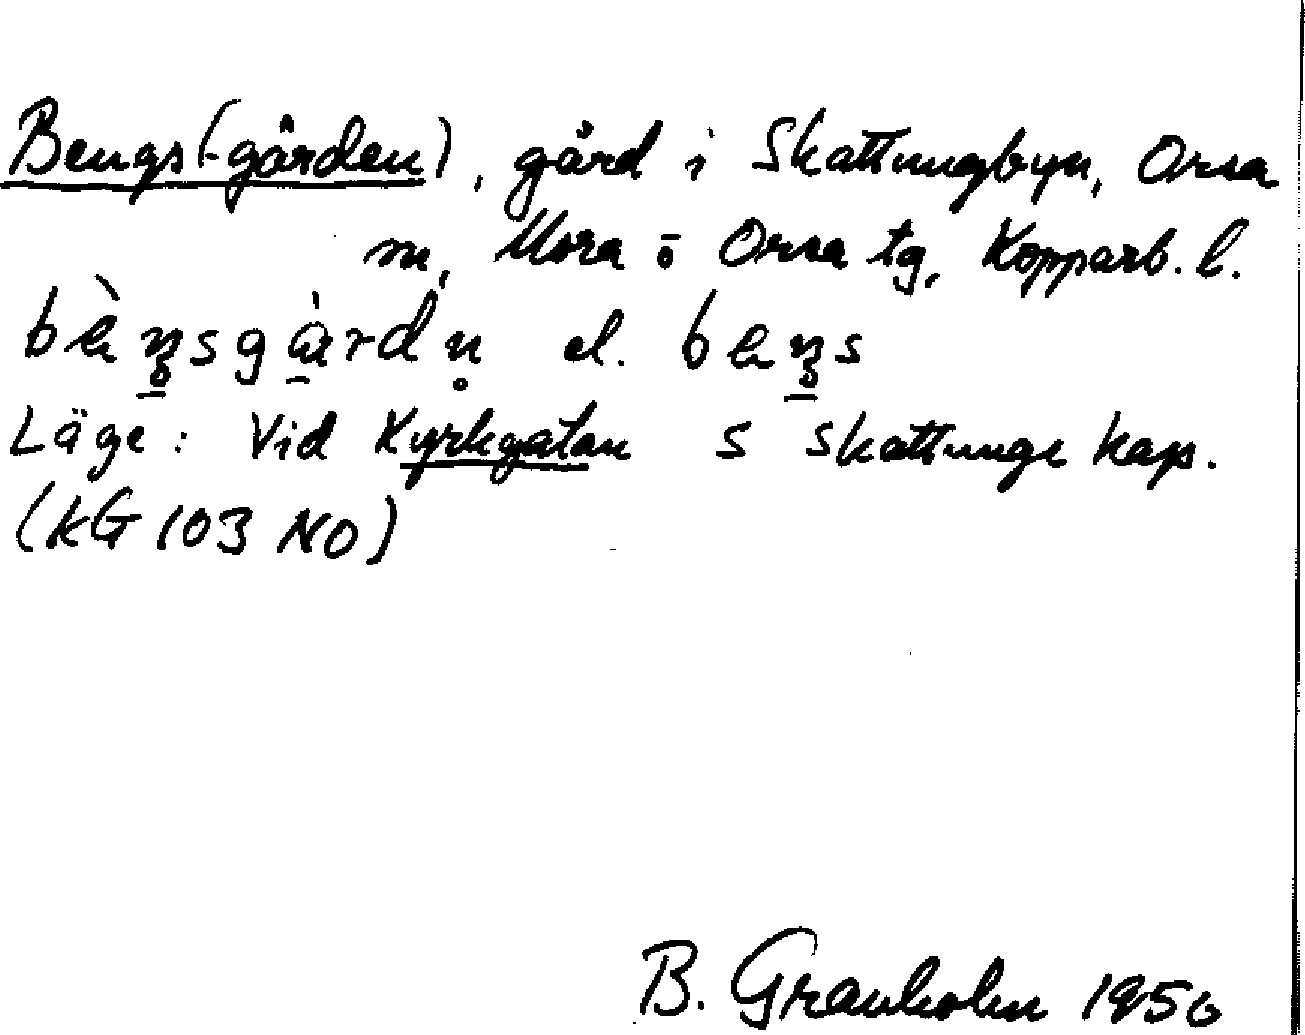 Bengs(-gården), gård i Skattungbyn, Orsa
sn, Mora o Orsa tg, Kopparb. l.
el.
Läge: Vid Kyrkgatan S Skattunge kap.
(KG 103 NO)
B. Granholm 1950